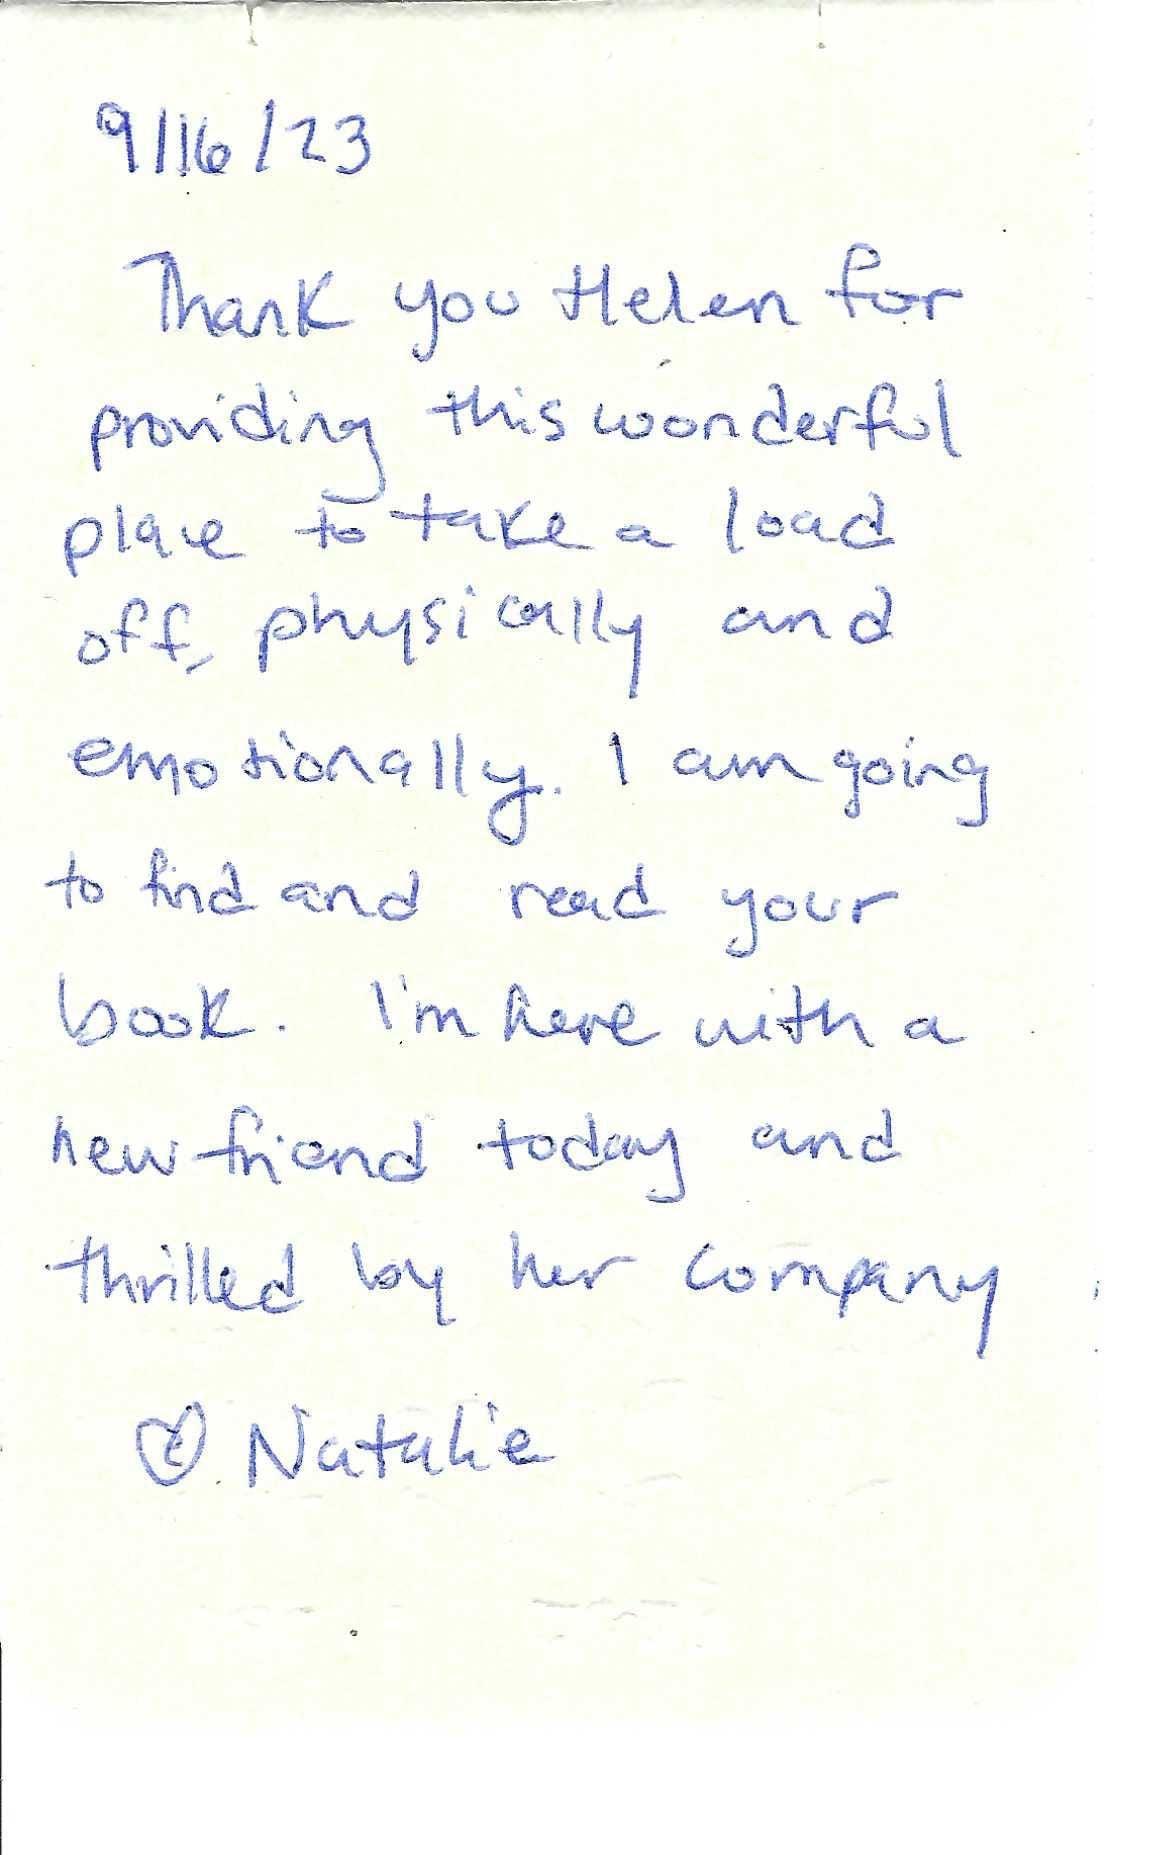 9/16/23
Thank you Helen for
providing this wonderful
place to take a load
off, physically and
emotionally. I am going
to find and read your
book. I'm here with a
new friend today and
thrilled by her company
♡ Natalie